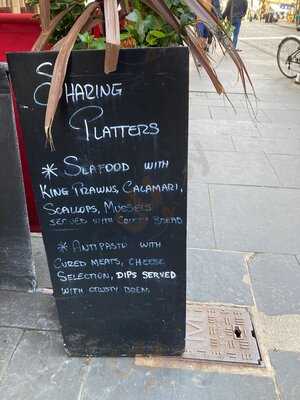 SHARING
PLATTERS
* SEAFOOD WITH
KING PRAWNS, CALAMARI,
SCALLOPS, MUSSELS
SERVED WITH CRUSTY BREAD
* ANTIPASTO WITH
CURED MEATS, CHEESE
SELECTION, DIPS SERVED
WITH CRUSTY